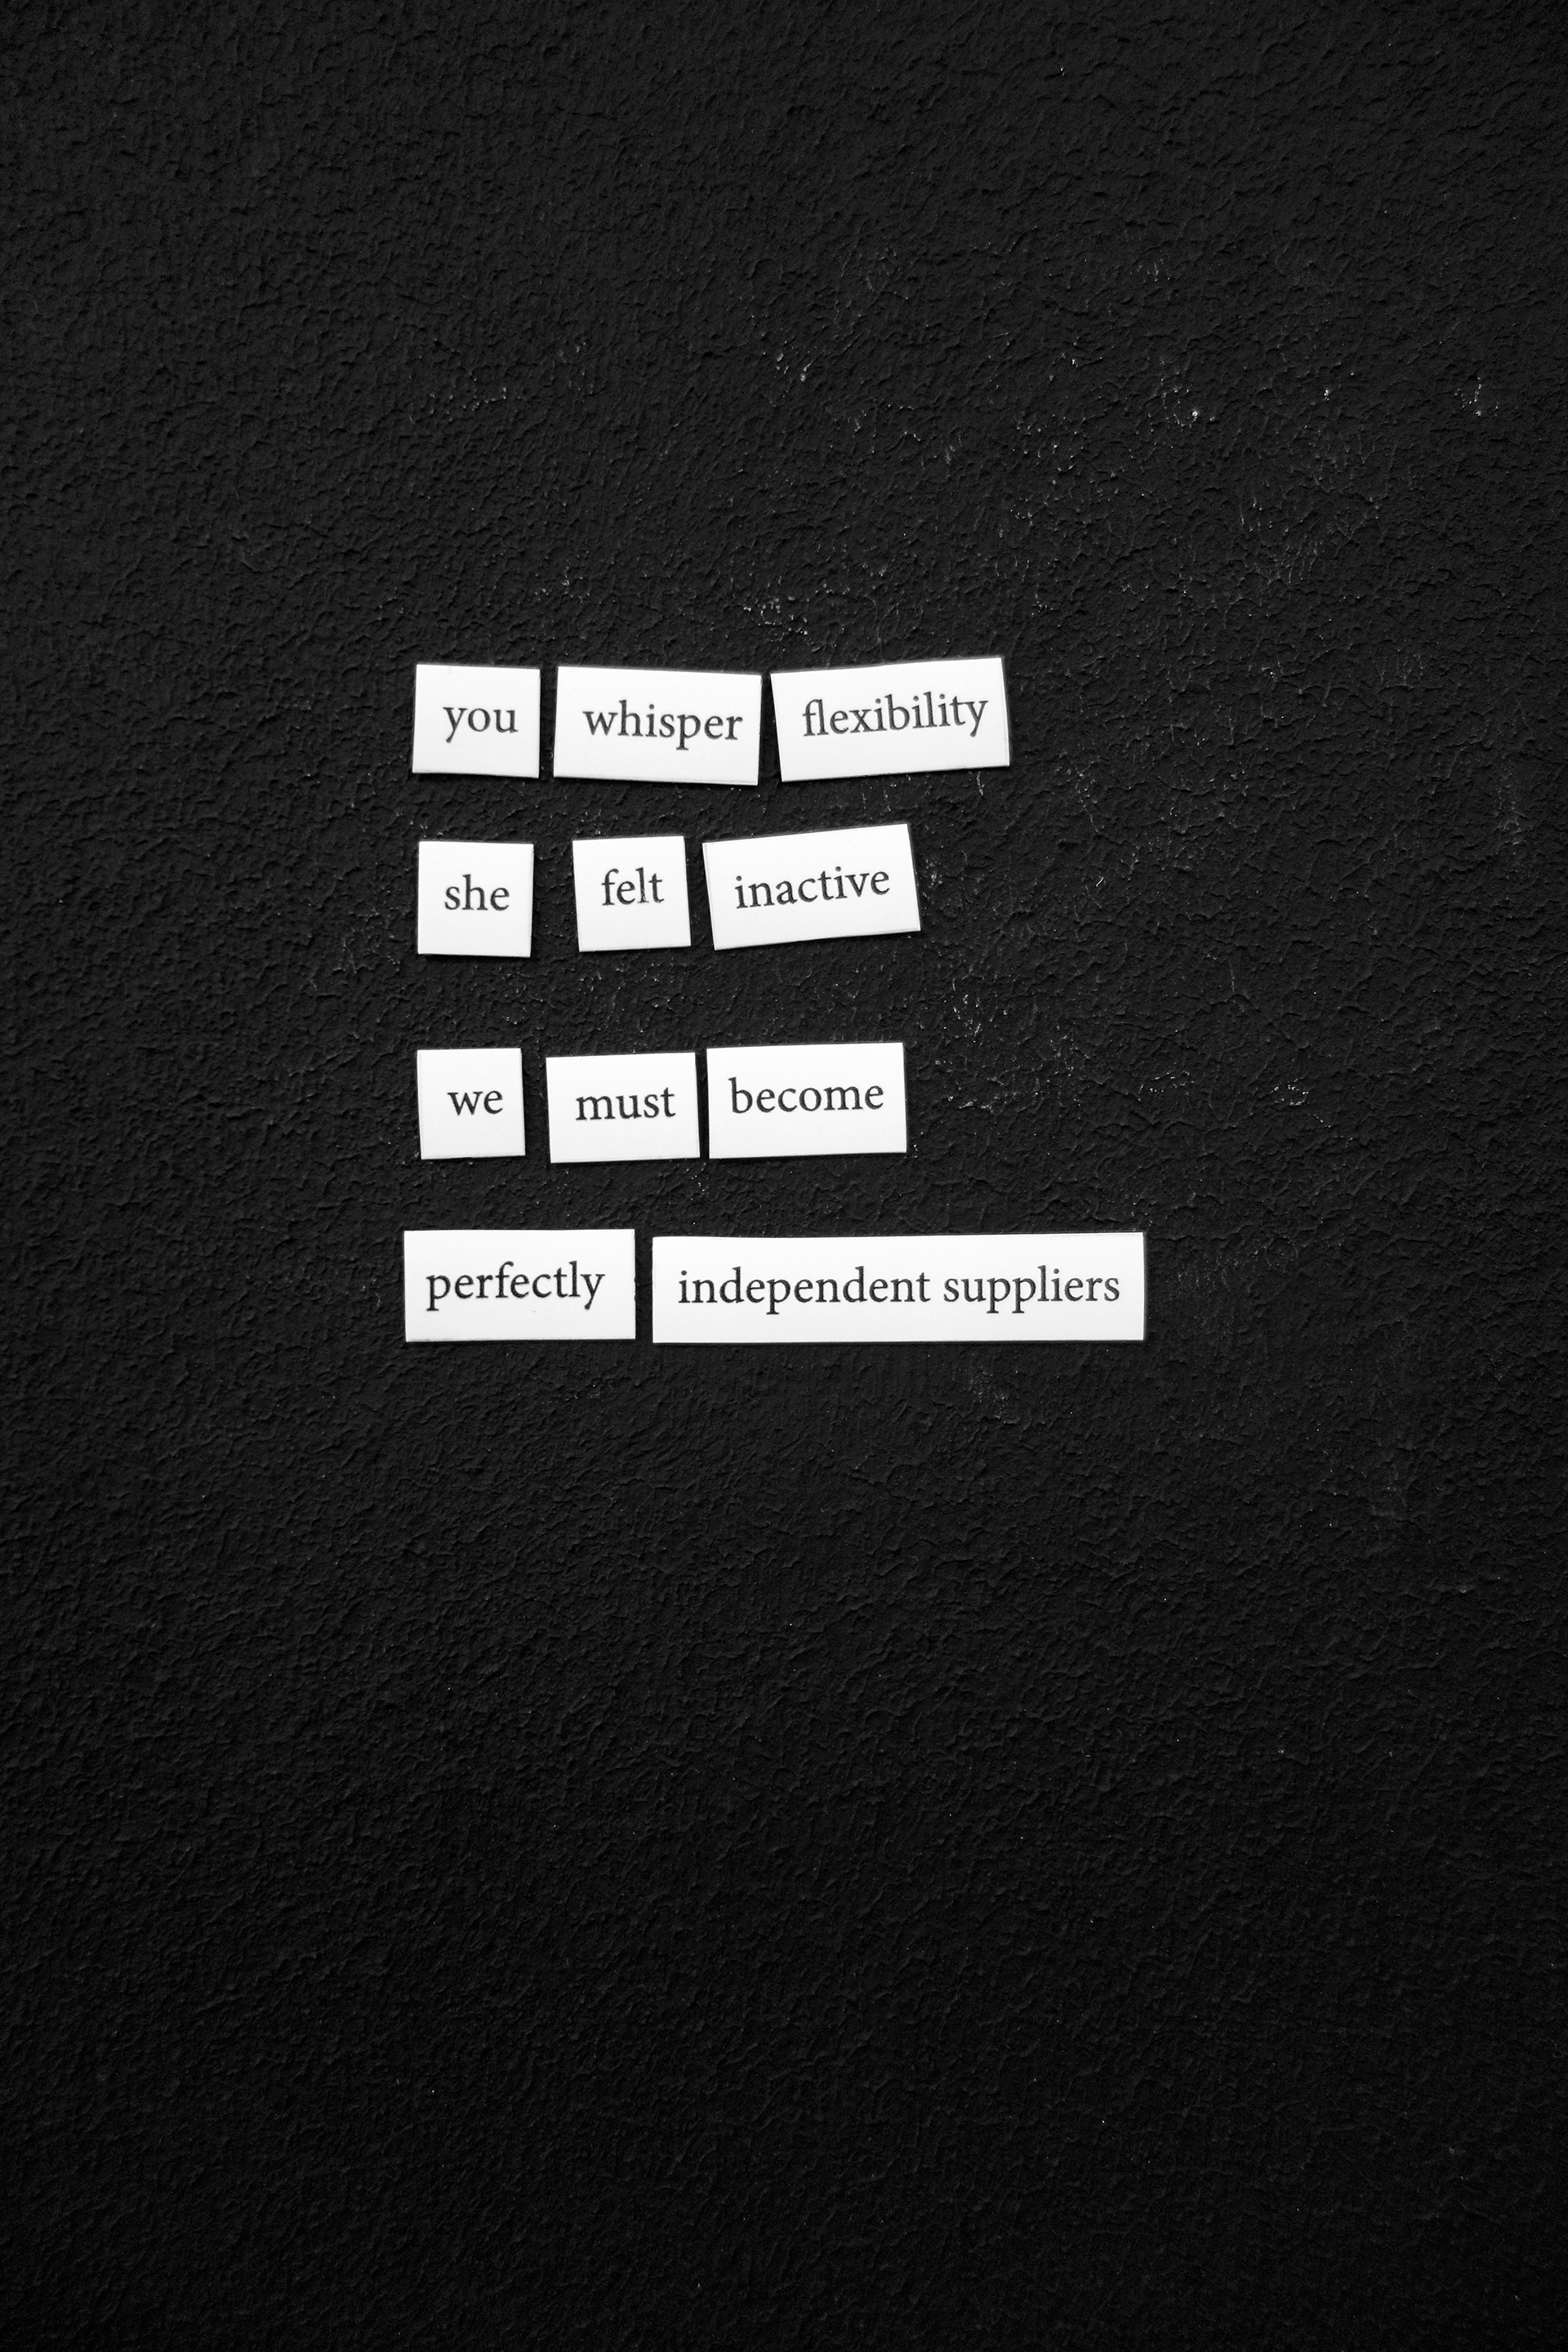 you whisper flexibility
she felt inactive
we must become
perfectly independent suppliers